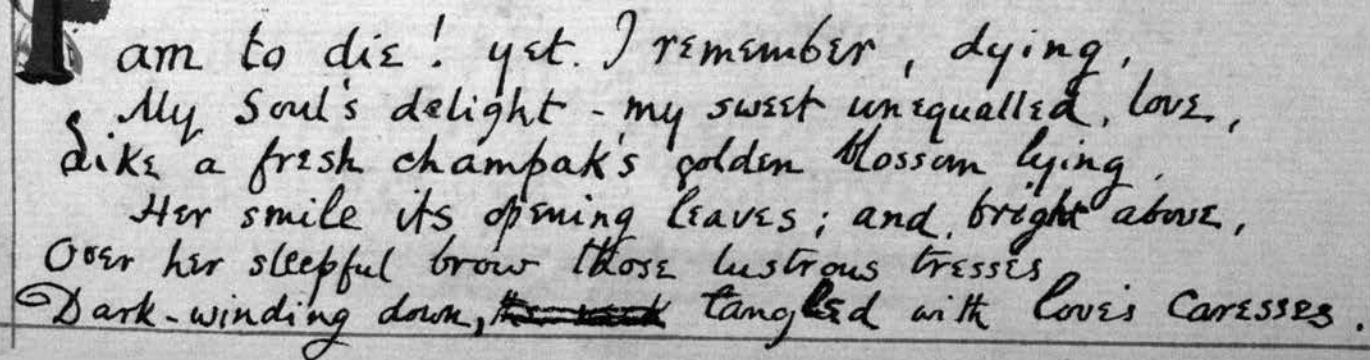 I am to die! yet. I remember, dying,
My Soul's delight - my sweet unequalled, love,
Like a fresh champak's golden blossom lying.
Her smile its opening leaves; and, bright above,
Over her sleepful brow those lustrous tresses
Dark-winding down, tangled with love's Caresses.